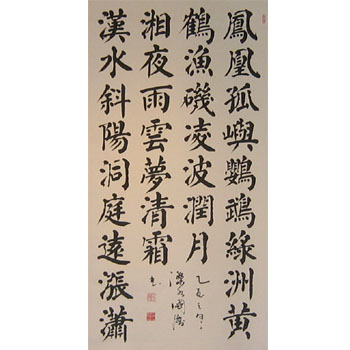 鳳凰孤嶼鸚鵡綠洲黃
鶴漁磯凌波潤月
湘夜雨雲夢清霜
漢水斜陽洞庭遠漲瀟